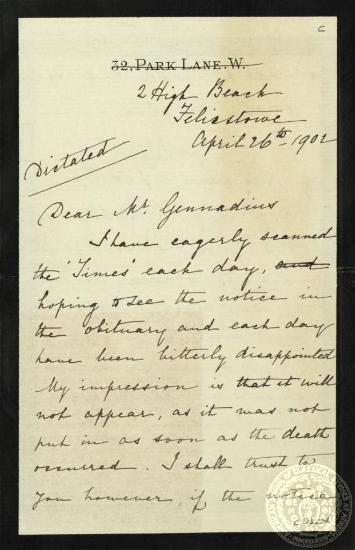 c
32, PARK LANE. W.
2 High Beach
Felixstowe
April 26th 1902
Dictated
Dear Mr. Gennadius
I have eagerly scanned
the 'Times' each day, and
hoping to see the notice in
the obituary and each day
have been bitterly disappointed
My impression is that it will
not appear, as it was not
put in as soon as the death
occurred. I shall trust to
you however, if the notice